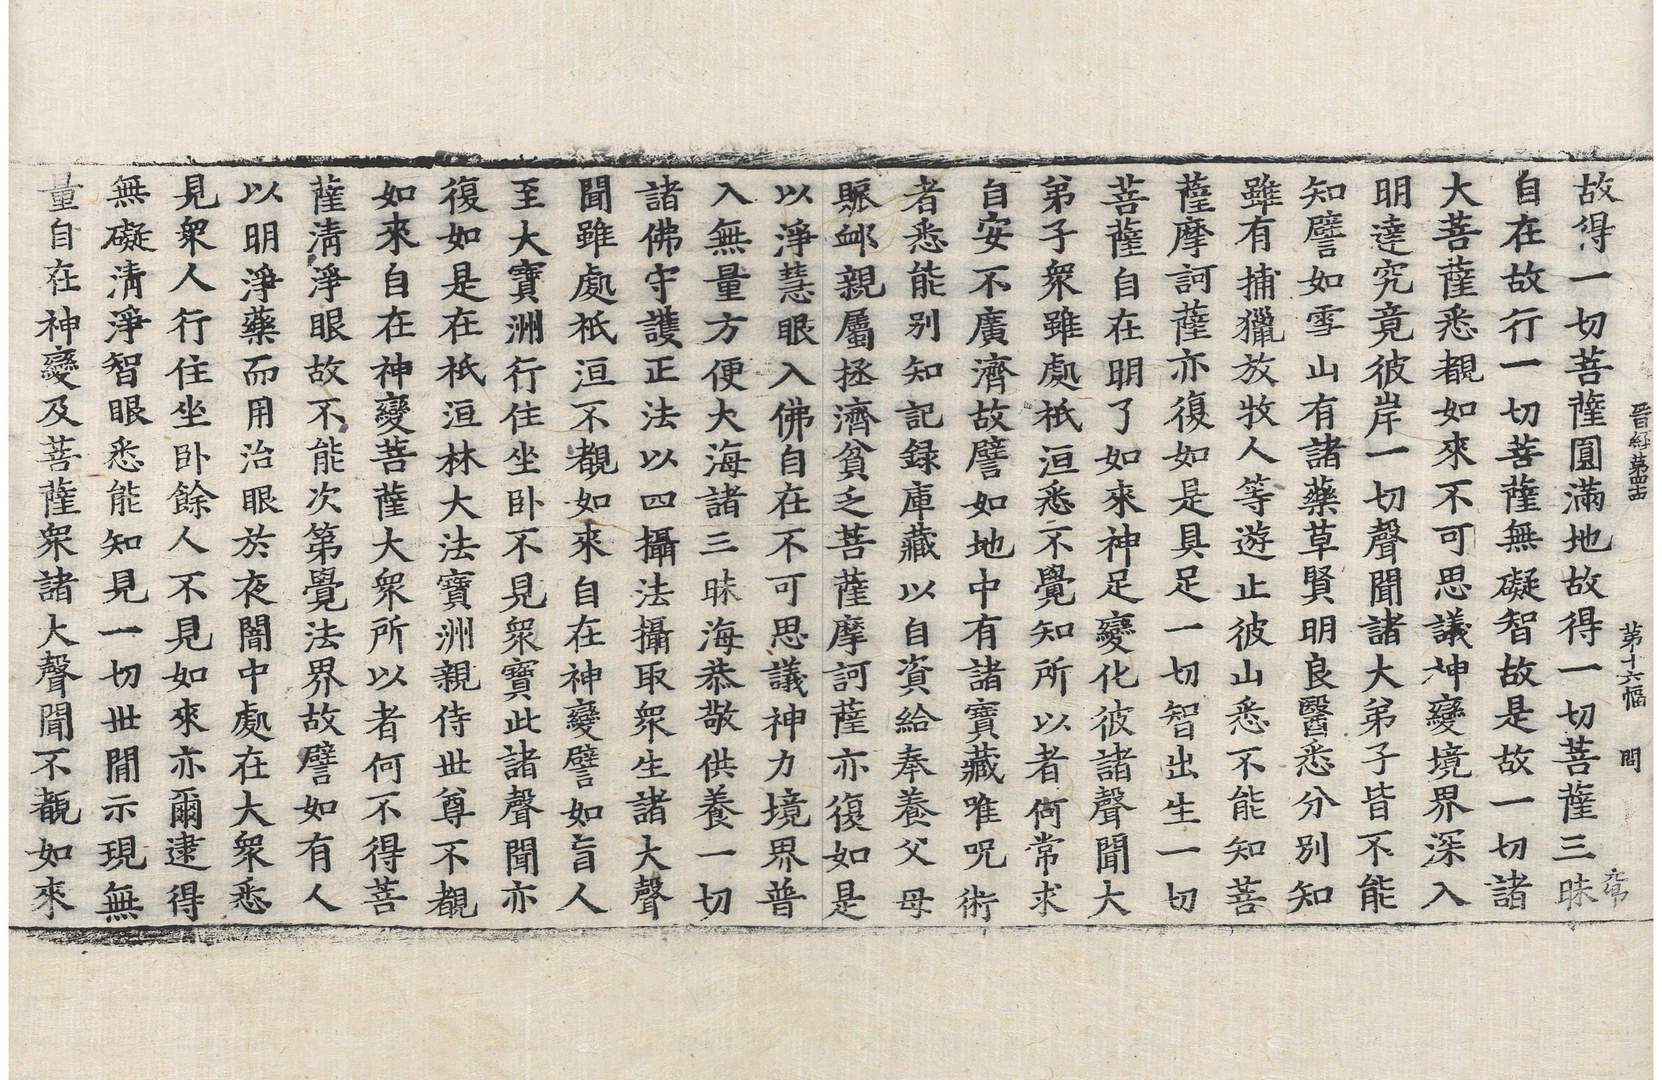 晉經苐四十四 苐十六幅
故得一切菩薩圓滿地故得一切菩薩三昧
自在故行一切菩薩無礙智故是故一切諸
大菩薩悉覩如來不可思議神變境界深入
明達究竟彼岸一切聲聞諸大弟子皆不能
知譬如雪山有諸藥草賢明良醫悉分別知
雖有捕獵放牧人等遊止彼山悉不能知菩
薩摩訶薩亦復如是具足一切智出生一切
菩薩自在明了如來神足變化彼諸聲聞大
弟子衆雖處祇洹悉不覺知所以者何常求
自安不廣濟故譬如地中有諸寶藏唯呪術
者悉能別知記録庫藏以自資給奉養父母
賑卹親屬拯濟貧乏菩薩摩訶薩亦復如是
以淨慧眼入佛自在不可思議神力境界普
入無量方便大海諸三昧海恭敬供養一切
諸佛守護正法以四攝法攝取衆生諸大聲
聞雖處祇洹不覩如來自在神變譬如盲人
至大寶洲行住坐卧不見衆寶此諸聲聞亦
復如是在祇洹林大法寶洲親侍世尊不覩
如來自在神變菩薩大衆所以者何不得菩
薩清淨眼故不能次第覺法界故譬如有人
以明淨藥而用治眼於夜闇中處在大衆悉
見衆人行住坐卧餘人不見如來亦爾逮得
無礙清淨智眼悉能知見一切世間示現無
量自在神變及菩薩衆諸大聲聞不覩如來